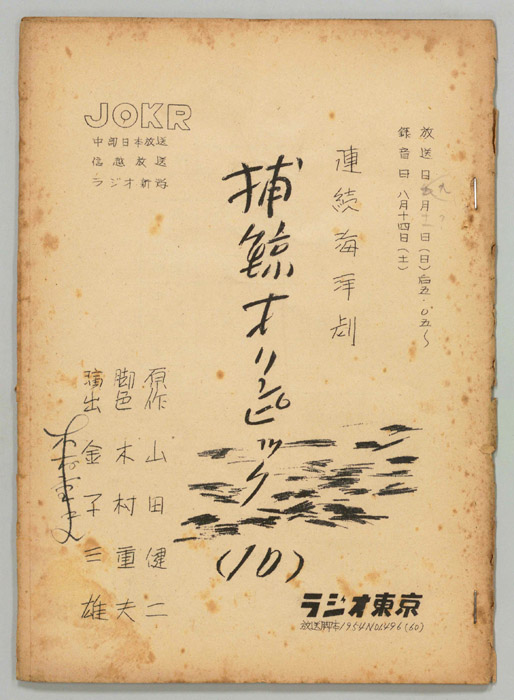 放送日 九月 日(日)后五・〇五〜
録音日 八月十四日(土)
連続海洋劇
捕鯨オリンピック
(10)
JOKR
中部日本放送
信越放送
ラジオ新潟
原作 山田健二
脚色 木村重夫
演出 金子三雄
木村重夫
ラジオ東京
放送脚本1954No.496(60)